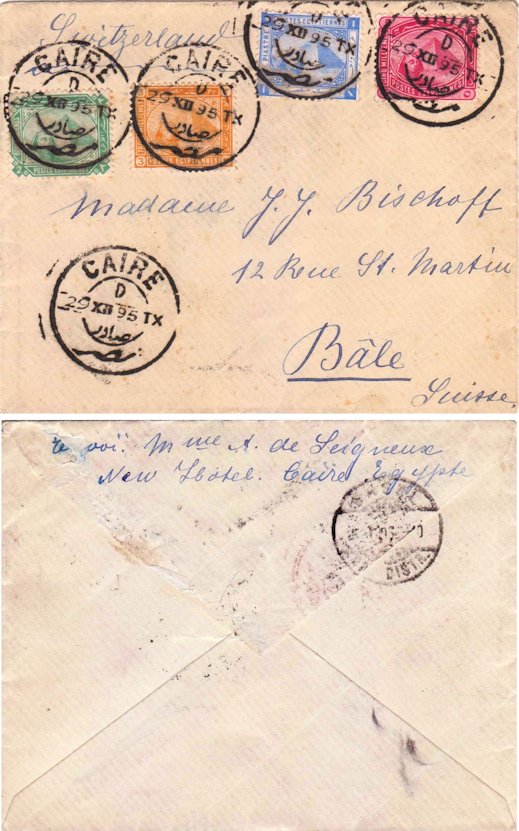 Switzerland
CAIRE
D
29 XII 95 TX
صادر
مصر
CAIRE
D
29 XII 95 TX
صادر
مصر
D
29 XII 95 TX
صادر
D
29 XII 95 TX
2
POSTES EGYPTIENNES
3
POSTES EGYPTIENNES
1
PIASTRE
POSTES EGYPTIENNES
1
5
POSTES EGYPTIENNES
Madame J. J. Bischoff
12 Rue St. Martin
Bâle
Suisse
CAIRE
D
29 XII 95 TX
صادر
مصر
Mme A. de Seigneux
New Hôtel. Caire Egypte
BASEL
DISTR.